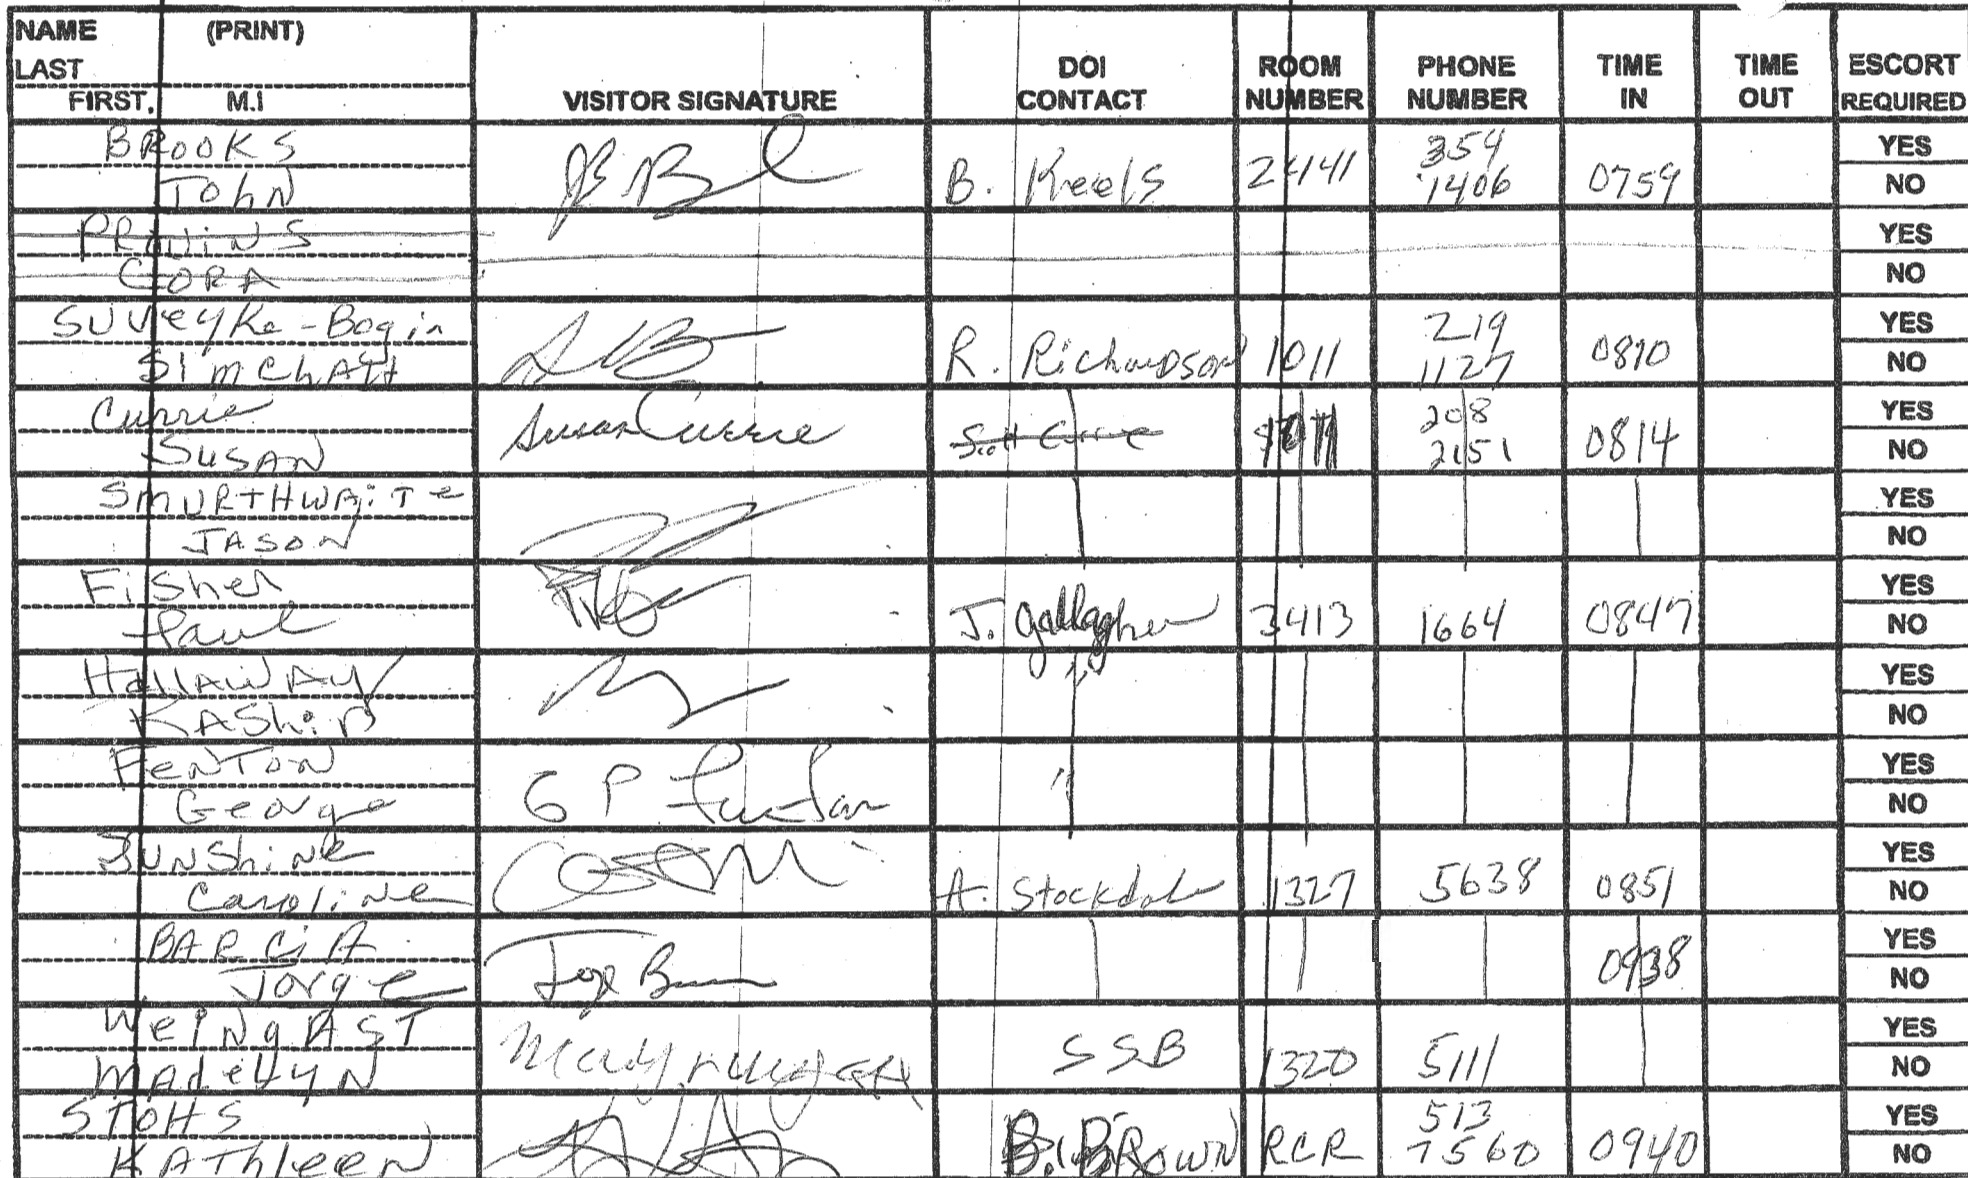 NAME (PRINT)
LAST
FIRST, M.I
VISITOR SIGNATURE
DOI
CONTACT
ROOM
NUMBER
PHONE
NUMBER
TIME
IN
TIME
OUT
ESCORT
REQUIRED
BROOKS
John
B. Keels
24141
354
1406
0759
YES
NO
PROVINS
CORA
YES
NO
SUVeyKe-Bogin
SimchAH
R. Richardson
1011
219
1127
0810
YES
NO
Currie
SUSAN
Susan Currie
Scott Currie
208
2151
0814
YES
NO
SMURTHWAiTe
JASON
YES
NO
Fisher
Paul
J. Gallagher
3413
1664
0847
YES
NO
HallAWAy
KAShif
YES
NO
FenTon
George
G P Fenton
YES
NO
SUNShiNe
Caroline
A. Stockdale
1327
5638
0851
YES
NO
BARCiA
Jorge
0938
YES
NO
WeiNgAST
MAdelyN
SSB
1320
5111
YES
NO
STOHS
KAThleeN
B. BROWN
RCR
513
7560
0940
YES
NO